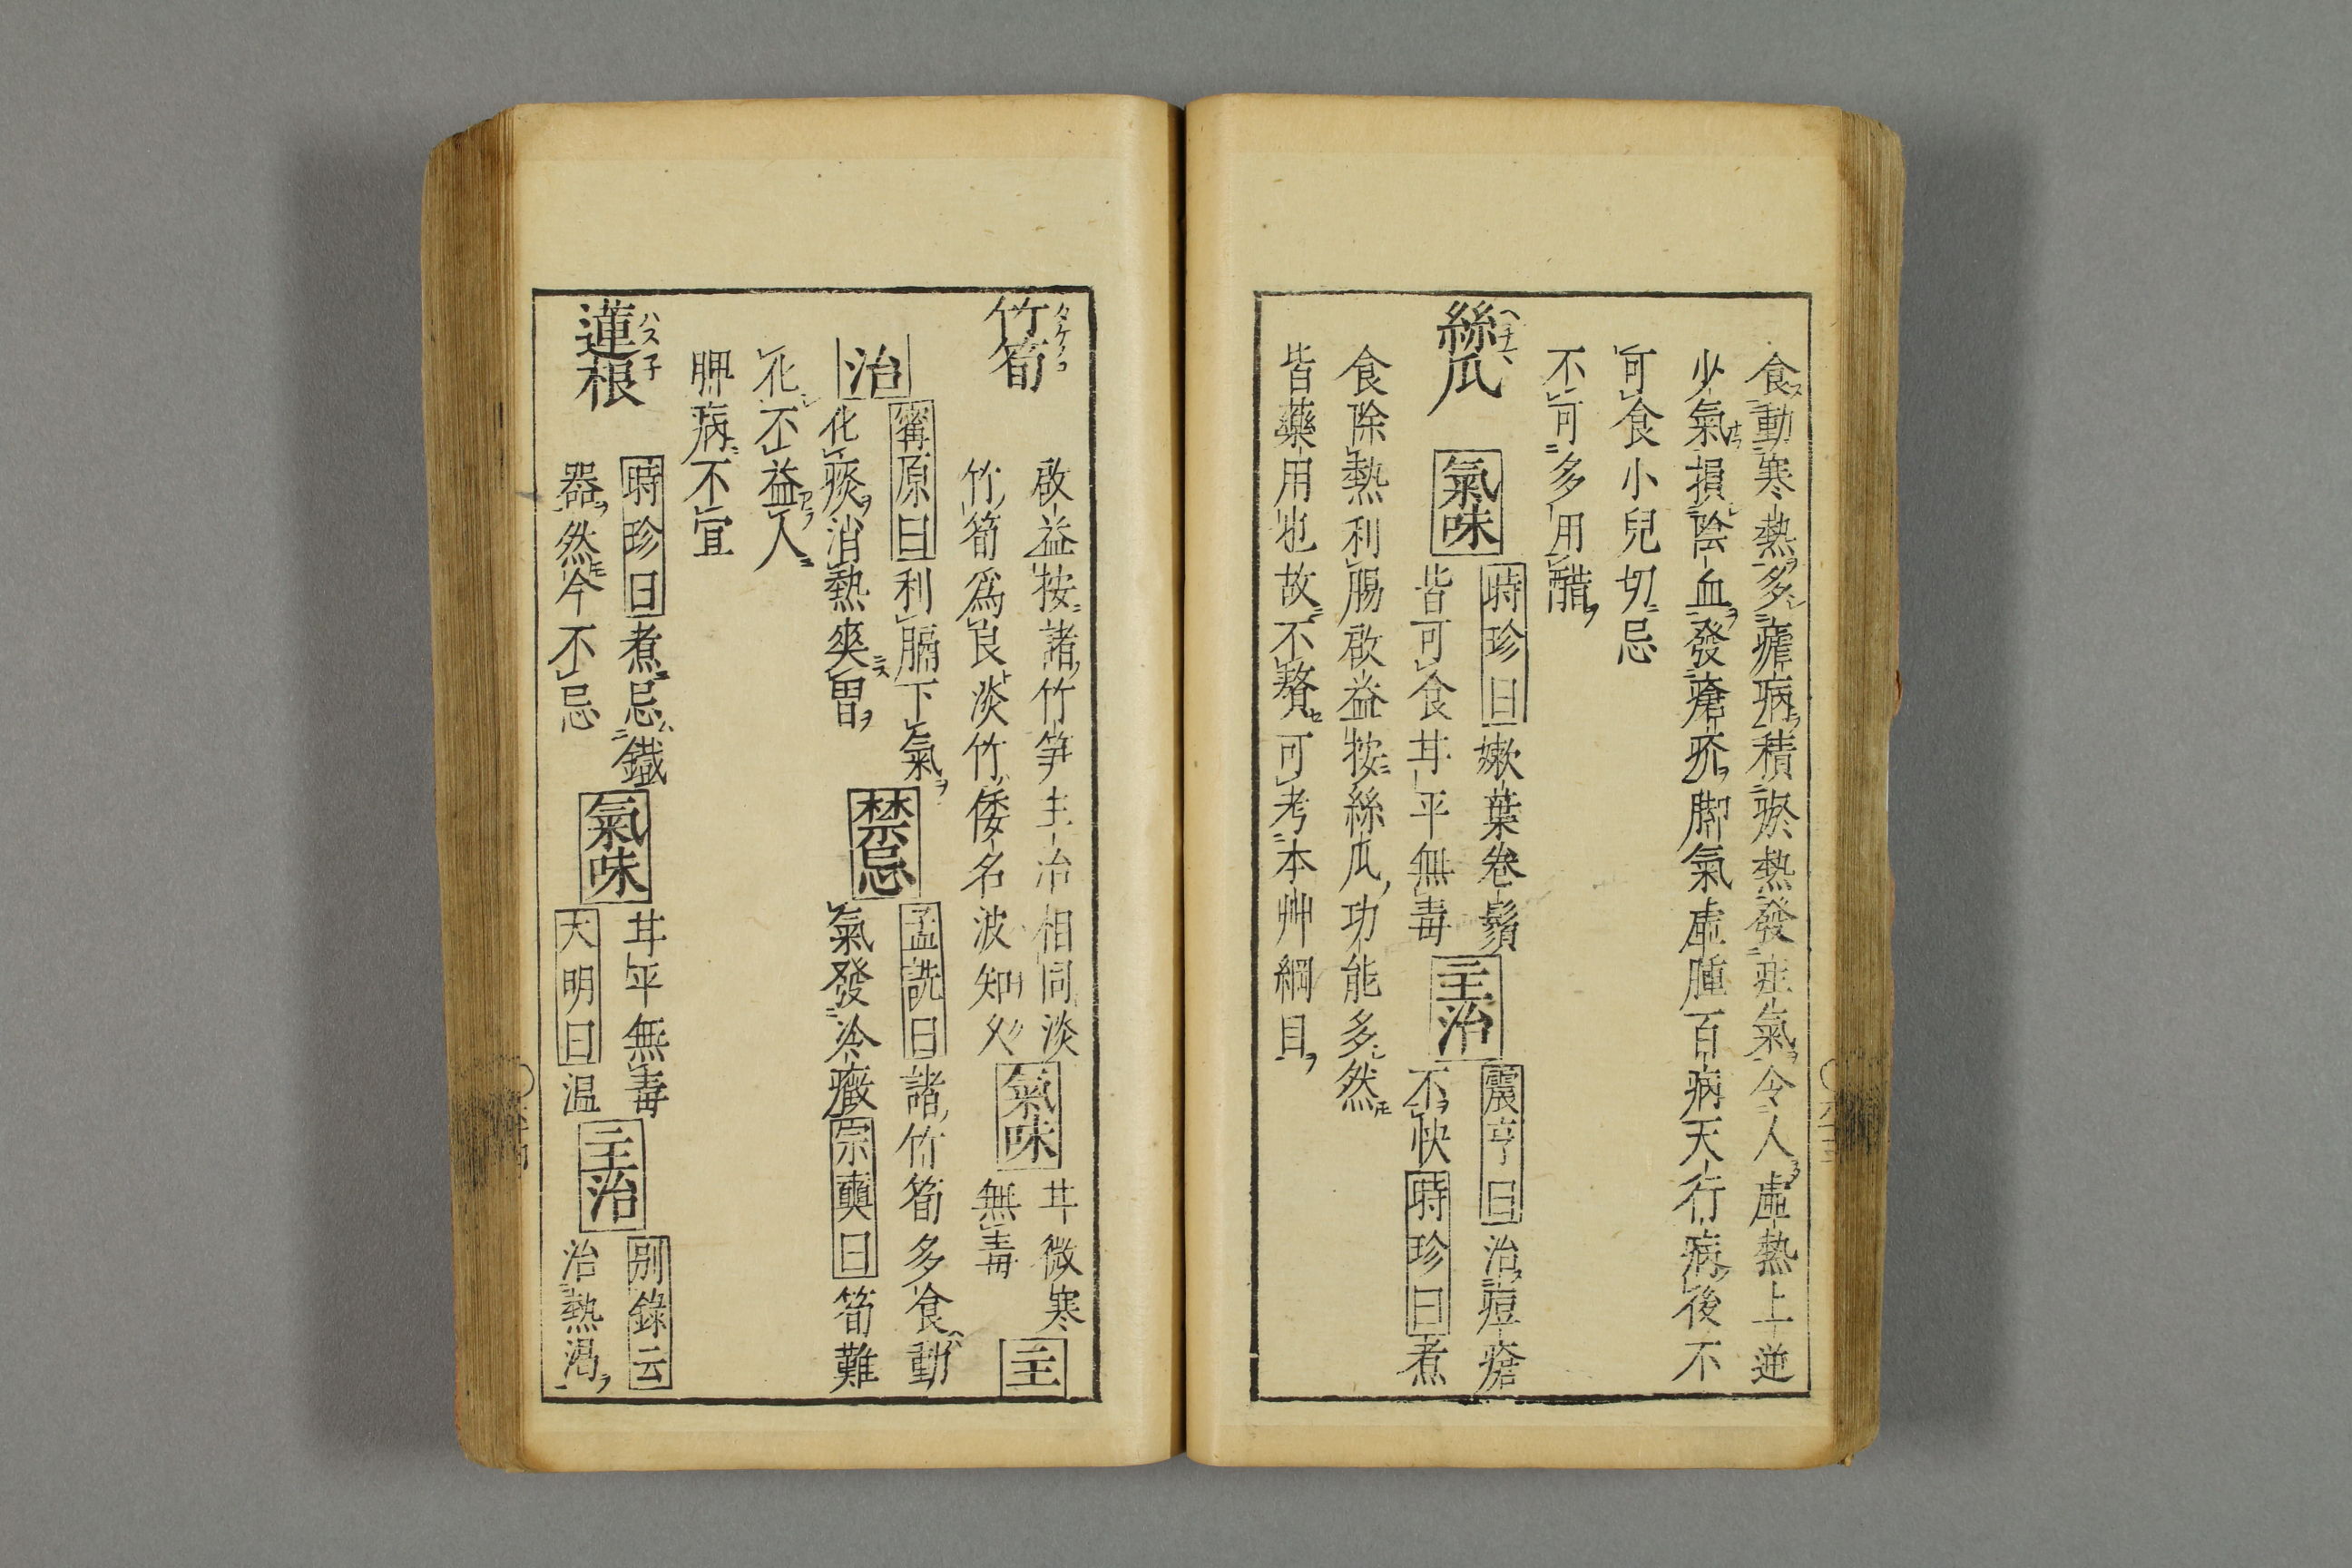 食動寒熱多瘧病積瘀熱發疰氣令人虛熱上逆
少氣損陰血發瘡疥脚氣虛腫百病天行病後不
可食小兒切忌
不可多用醋
絲瓜
氣味
時珍曰嫰葉卷鬚
皆可食甘平無毒
主治
震亨曰治痘瘡
不快時珍曰煮
食除熱利腸啟益按絲瓜功能多然
皆藥用也故不贅可考本艸綱目
竹筍
タケノコ
啟益按諸竹笋主治相同淡
竹筍爲良淡竹倭名波知久
氣味
甘微寒
無毒
主
治
寗原曰利膈下氣
化痰消熱爽胃
禁忌
孟詵曰諸竹筍多食動
氣發冷癥宗奭曰筍難
化不益人
脾病不宜
蓮根
ハス子
時珍曰煮忌鐵
器然今不忌
氣味
甘平無毒
大明曰温
主治
别錄云
治熱渴